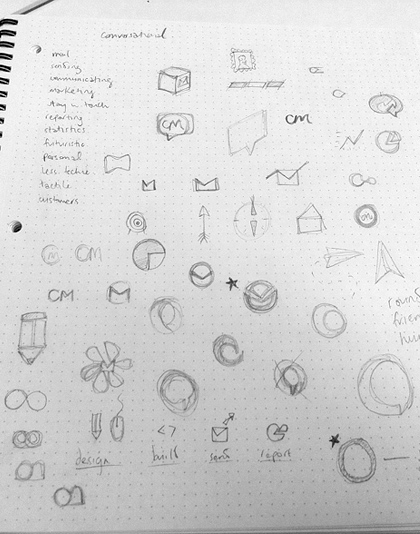 conversational
mail
sending
communicating
marketing
stay in touch
reporting
statistics
futuristic
personal
less techie
tactile
customers
CM
CM
M
CM
CM
CM
M
design
build
send
report